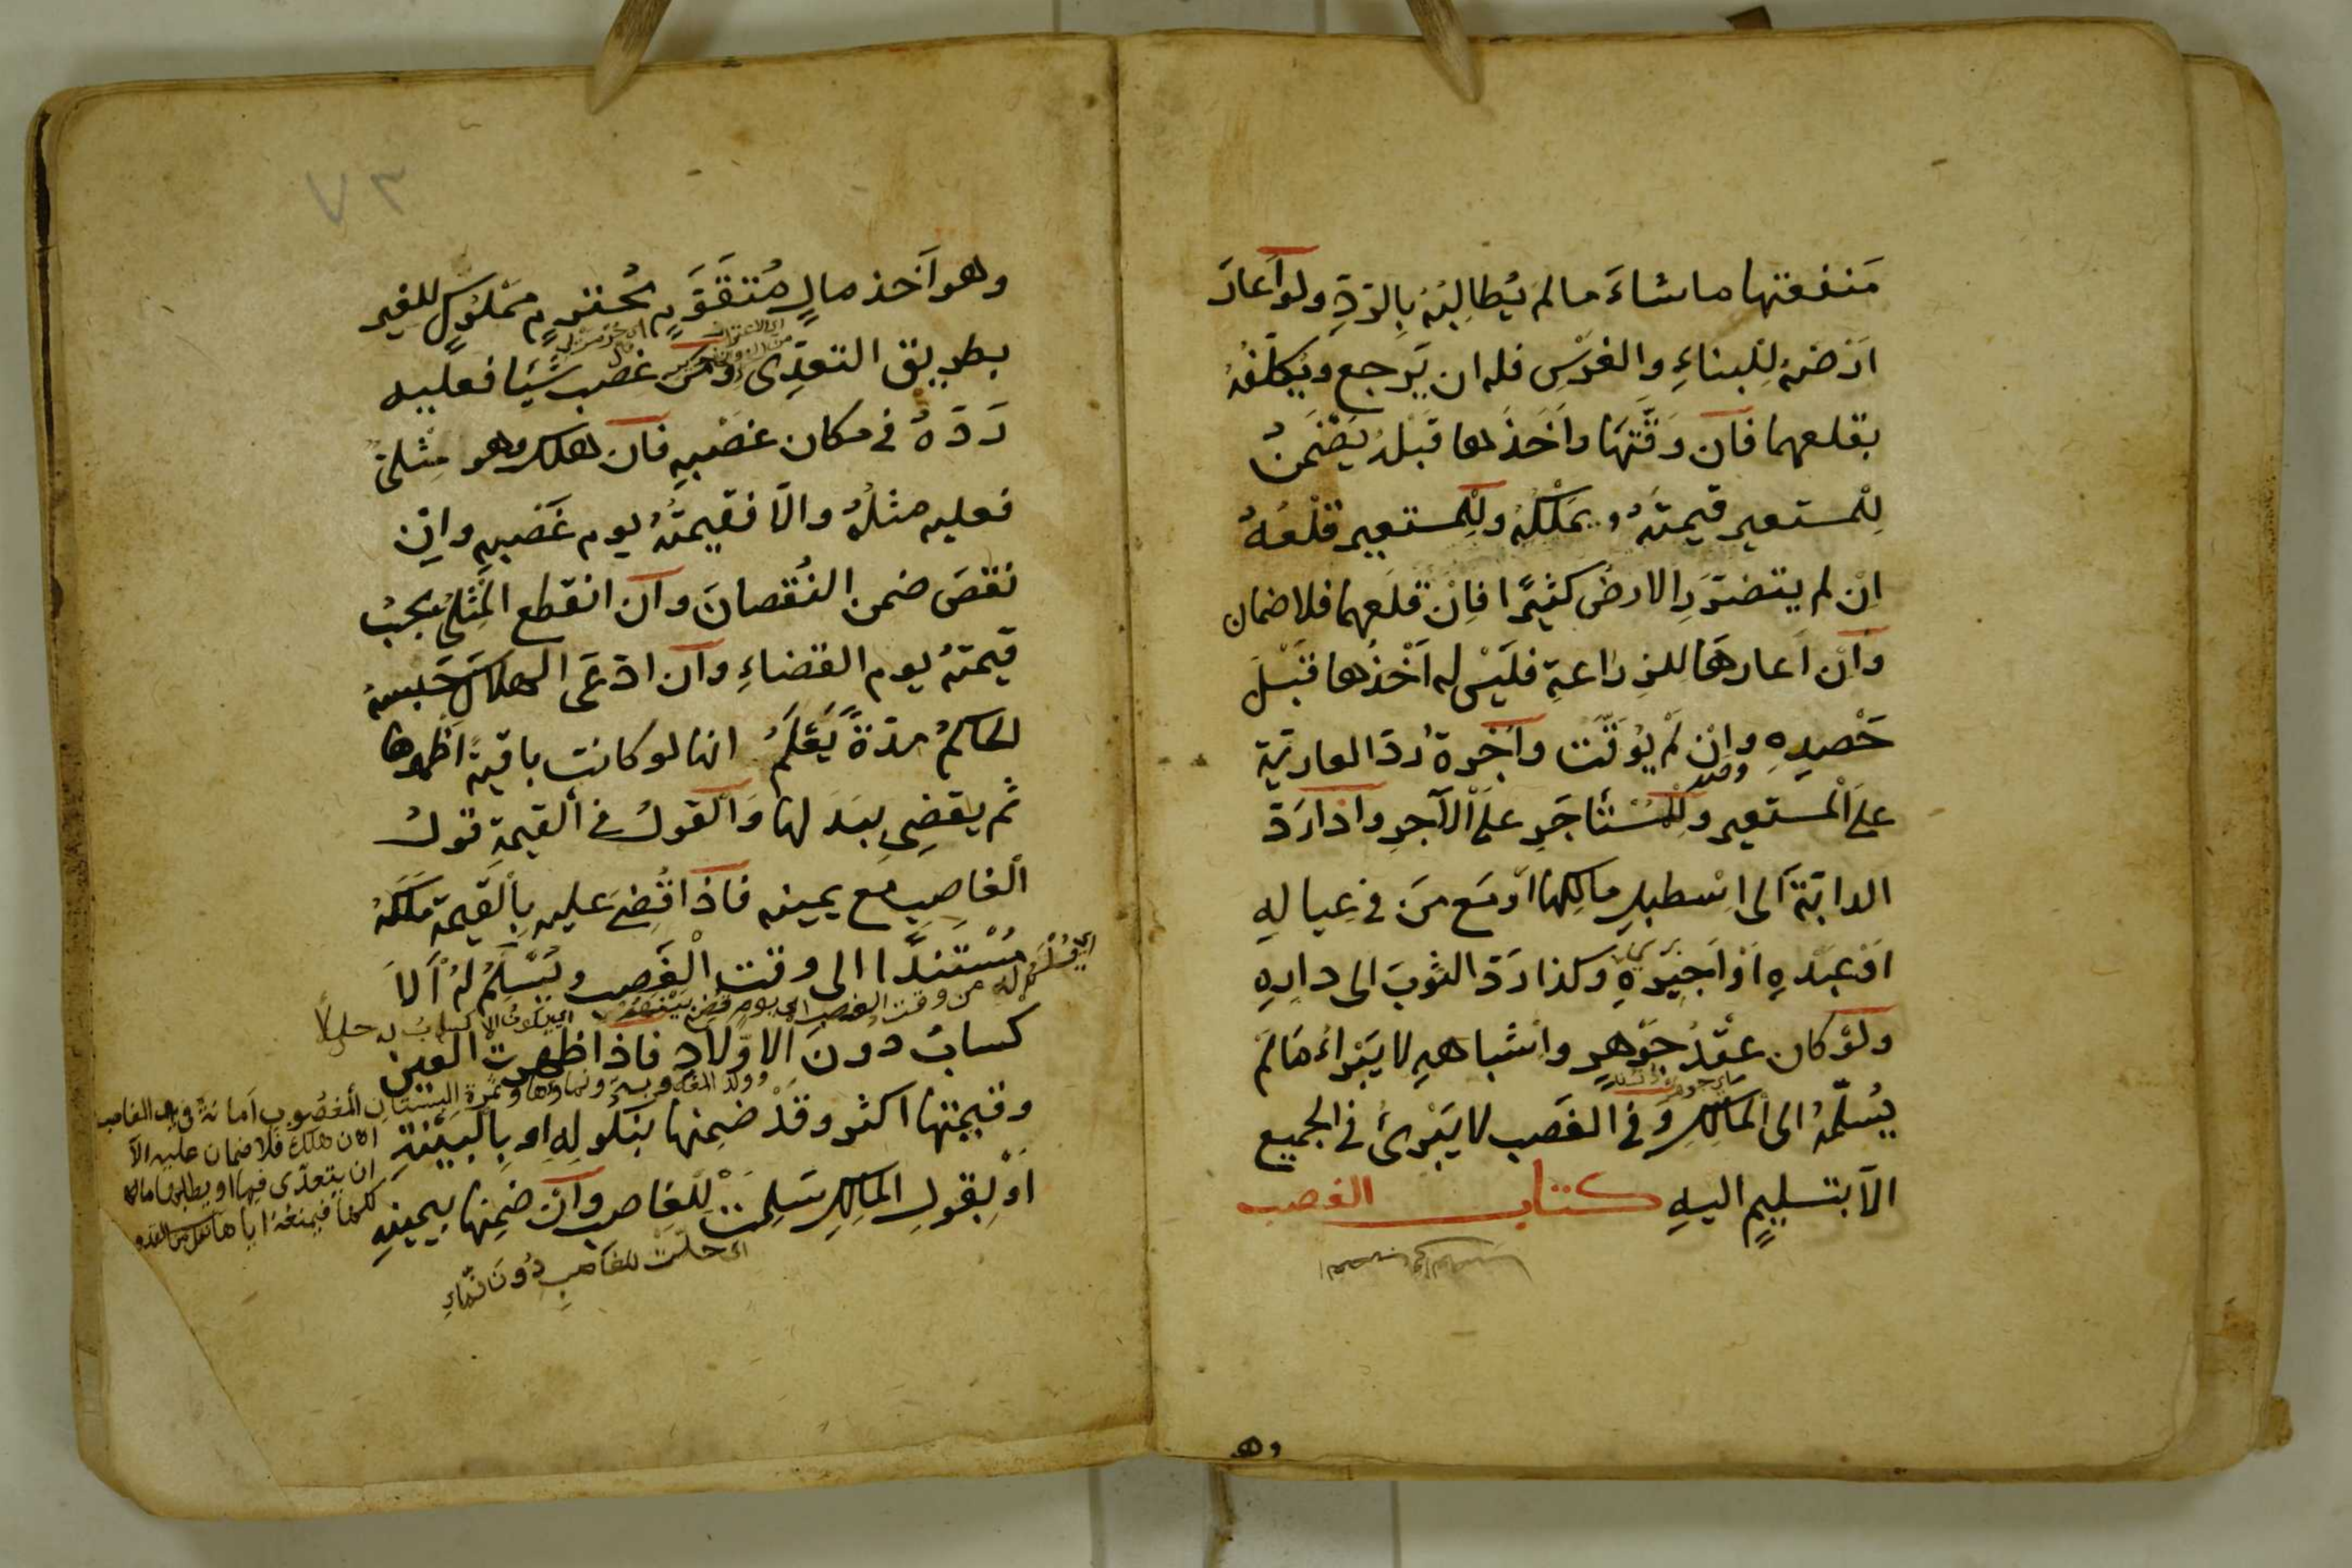 مَنفعَتها ما شاءَ ما لم يُطالِبْهُ بِالرَّدِّ ولو اَعارَ
ارْضَهُ لِلْبناءِ والغَرْسِ فله ان يَرجع ويُكَلِّفُهُ
بقلعهما فان وَقَّتَهَا وَاَخَذَها قبْلَهُ يَضْمَنُ
لِلْمستعير قيمتَهُ ويَمْلكُهُ ولِلْمستعير قَلْعُهُ
اِنْ لم يتضرّرِ الارضُ كثيرًا فاِنْ قلعهما فلا ضمان
وَاِنْ اَعارهَا للزراعةِ فلَيْس له اَخْذُها قَبْلَ
حَصْدِهِ وانْ لَمْ يُوَقَّتْ واُجْرةُ ردّ العاريّة
علَى المستعير ولِلْمُسْتأجَرِ علَى الآجرِ واِذا رَدَّ
الدابّةَ الى اِسْطبلِ مالِكها اَوْ مَع مَنْ في عِيالِهِ
اَوْ عبْدهِ اَوْ اَجيرهِ وكذا رَدّ الثوبَ الى دارِهِ
ولَوْ كان عِقْدُ جَوْهرٍ واشباههِ لا يَبْرأُ مَا لَمْ
يُسَلِّمْهُ الى المالكِ وَفي الغَصب لا يَبْرئُ في الجميع
الاّ بتسليمٍ اليهِ كتاب الغصب
وهو
٧٣
وهو اَخذ مالٍ مُتقَوَّمٍ مُحْترمٍ مَمْلوكٍ للغير
بطريق التعدّى ومَنْ غصب شَيْئا فعليه
رَدّهُ في مكان غصْبهِ فان هلك وهو مِثْلىٌّ
فعليه مثلُهُ والّا فقيمتُهُ يوم غَصْبهِ واِن
نقصَ ضمن النُقصانَ وان انقطع المِثْلىُّ يجبُ
قيمتهُ يوم القضاءِ وان ادّعَى الهلاكَ حَبسهُ
الحاكمُ مدّةً يَعْلَمُ انها لو كانت باقيةً اظهرها
ثم يقضِى ببَدَلها وَالقولُ في القيمةِ قولُ
الغاصِبِ مع يمينه فاذا قُضىَ عليهِ بِالقيمةِ مَلَكَهُ
مُسْتندًا الى وقت الْغَصب ويُسَلَّمُ لهُ اَلاَ
كسابُ دونَ الاوْلادِ فاذا ظهرت العين
اى يكونُ الاكسابُ له حلالًا
وقيمتها اكثر وقَدْ ضمِنها بنكولهِ او بِالبيّنَةِ
وثمرة البستان المغصُوب اَمانةٌ في يد الغاصب
ان هلك فلا ضمان عليه الاّ
ان يتعدّى فيها او يطلبها مالكها
فيمنعهُ اياها
اَوْ بِقولِ المالك سَلِمَتْ لِلْغاصب وان ضمِنها بيمينهِ
اى حلّتْ للغاصِبِ دُونَ نمّاءِ